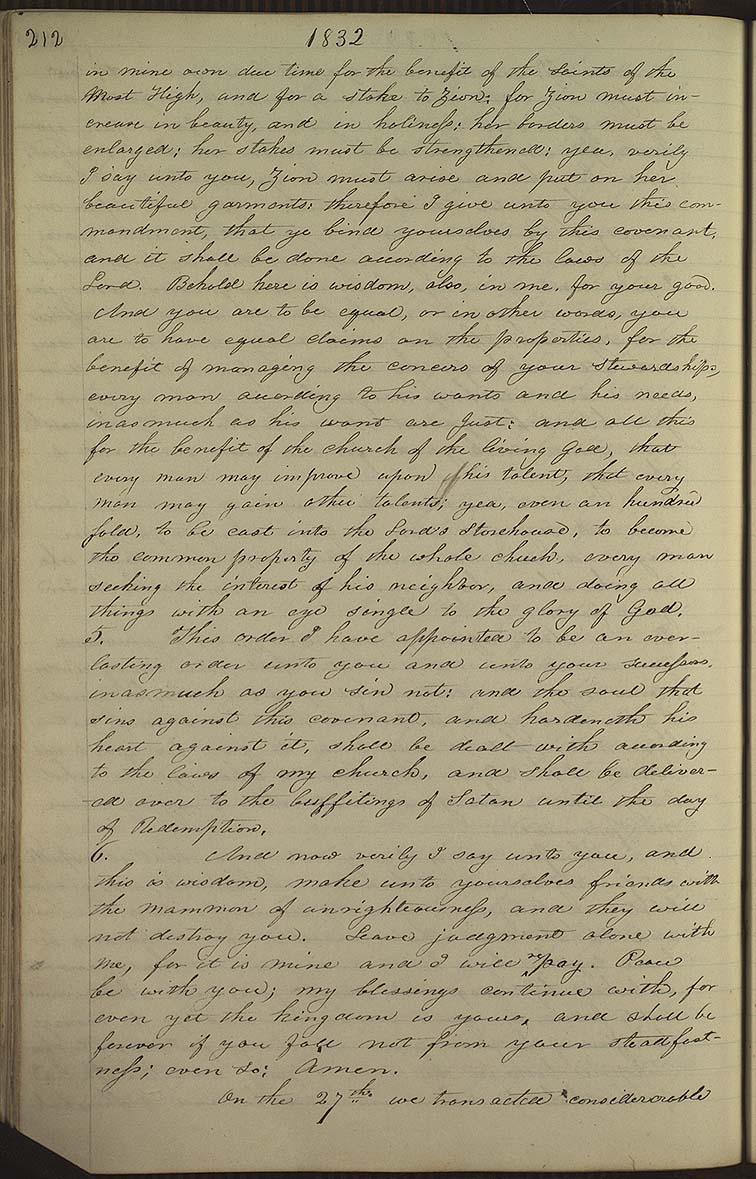 212
1832
in mine own due time for the benefit of the saints of the
Most High, and for a stake to Zion; for Zion must in-
crease in beauty, and in holiness: her borders must be
enlarged; her stakes must be strengthened: yea, verily
I say unto you, Zion must arise and put on her
beautiful garments: therefore I give unto you this com-
mandment, that ye bind yourselves by this covenant,
and it shall be done according to the laws of the
Lord. Behold here is wisdom, also, in me, for your good.
And you are to be equal, or in other words, you
are to have equal claims on the properties, for the
benefit of managing the concers of your stewardships,
every man according to his wants and his needs,
inasmuch as his want are just: and all this
for the benefit of the church of the living God, that
every man may improve upon his talent, that every
man may gain other talents; yea, even an hundred
fold, to be cast into the Lord's storehouse, to become
the common property of the whole chuch, every man
seeking the interest of his neighbor, and doing all
things with an eye single to the glory of God.
5. This order I have appointed to be an ever-
lasting order unto you and unto your successors,
inasmuch as you sin not: and the soul that
sins against this covenant, and hardeneth his
heart against it, shall be dealt with according
to the laws of my church, and shall be deliver-
ed over to the buffitings of Satan until the day
of Redemption.
6. And now verily I say unto you, and
this is wisdom, make unto yourselves friends with
the mammon of unrighteousness, and they will
not destroy you. Leave judgment alone with
me, for it is mine and I will repay. Peace
be with you; my blessings continue with, for
even yet the kingdom is yours, and shall be
forever if you fall not from your steadfast-
ness; even so: Amen.
On the 27th we transacted considerable